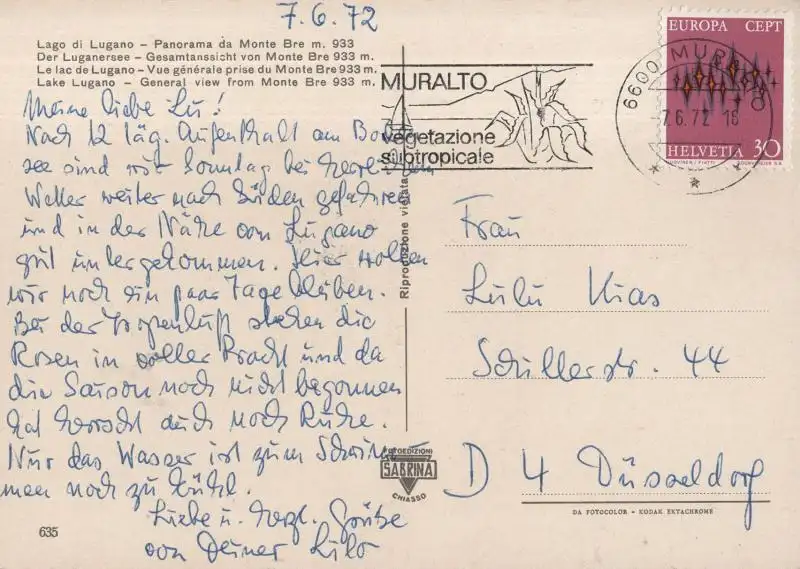 7.6.72
Lago di Lugano – Panorama da Monte Bre m. 933
Der Luganersee – Gesamtansicht von Monte Bre 933 m.
Le lac de Lugano – Vue générale prise du Monte Bre 933 m.
Lake Lugano – General view from Monte Bre 933 m.
Meine liebe Lu!
Nach 12 täg. Aufenthalt am Boden
see sind wir Sonntag bei herrlichem
Wetter weiter nach Süden gefahren
und in der Nähe von Lugano
gut untergekommen. Hier wollen
wir noch ein paar Tage bleiben.
Bei der Tropenluft stehen die
Rosen in voller Pracht und da
die Saison noch nicht begonnen
hat herrscht auch noch Ruhe.
Nur das Wasser ist zum Schwim
men noch zu kühl.
Liebe u. herzl. Grüße
von Deiner Lilo
635
MURALTO
vegetazione
subtropicale
6600 MURALTO
-7.6.72 18
EUROPA CEPT
HELVETIA 30
Riproduzione vietata
Frau
Lulu Kias
Schillerstr. 44
D 4 Düsseldorf
FOTOEDIZIONI
SABRINA
CHIASSO
DA FOTOCOLOR - KODAK EKTACHROME